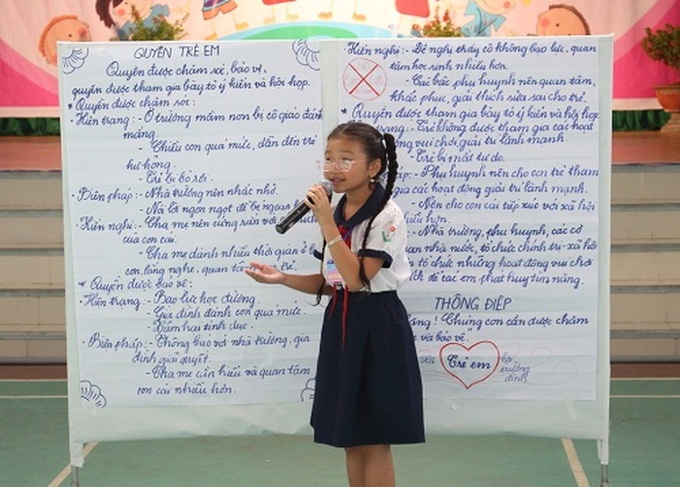 QUYỀN TRẺ EM
Quyền được chăm sóc, bảo vệ,
quyền được tham gia bày tỏ ý kiến và hội họp.
* Quyền được chăm sóc:
- Hiện trạng: - Ở trường mầm non bị cô giáo đánh
mắng.
- Chiều con quá mức, dẫn đến trẻ
hư hỏng.
- Trẻ bị bỏ rơi.
- Biện pháp: - Nhà trường nên nhắc nhở.
- Nói lời ngon ngọt để bé ngoan
- Kiến nghị: - Cha mẹ nên cứng rắn với
của con cái.
- Cha mẹ dành nhiều thời gian ở
con, lắng nghe, quan trẻ.
* Quyền được bảo vệ:
- Hiện trạng: - Bạo lực học đường.
- Gia đình đánh con quá mức.
- Xâm hại tình dục.
- Biện pháp: - Thông báo với nhà trường, gia
đình giải quyết.
- Cha mẹ cần hiểu và quan tâm
con cái nhiều hơn.
Kiến nghị: - Đề nghị thầy cô không bạo lực, quan
tâm học sinh nhiều hơn.
- Các bậc phụ huynh nên quan tâm,
khắc phục, giải thích sửa sai cho trẻ.
* Quyền được tham gia bày tỏ ý kiến và hội họp
trạng: - Trẻ không được tham gia các hoạt
động vui chơi, giải trí lành mạnh.
- Trẻ bị mất tự do.
pháp: - Phụ huynh nên cho con trẻ tham
gia các hoạt động giải trí lành mạnh.
nên cho con tiếp xúc với xã hội
nhiều hơn.
- Nhà trường, phụ huynh, các cơ
quan nhà nước, tổ chức chính trị - xã hội
tổ chức những hoạt động vui chơi
ích để các em phát huy tiềm năng.
THÔNG ĐIỆP
lắng! Chúng con cần được chăm
và bảo vệ".
Trẻ em